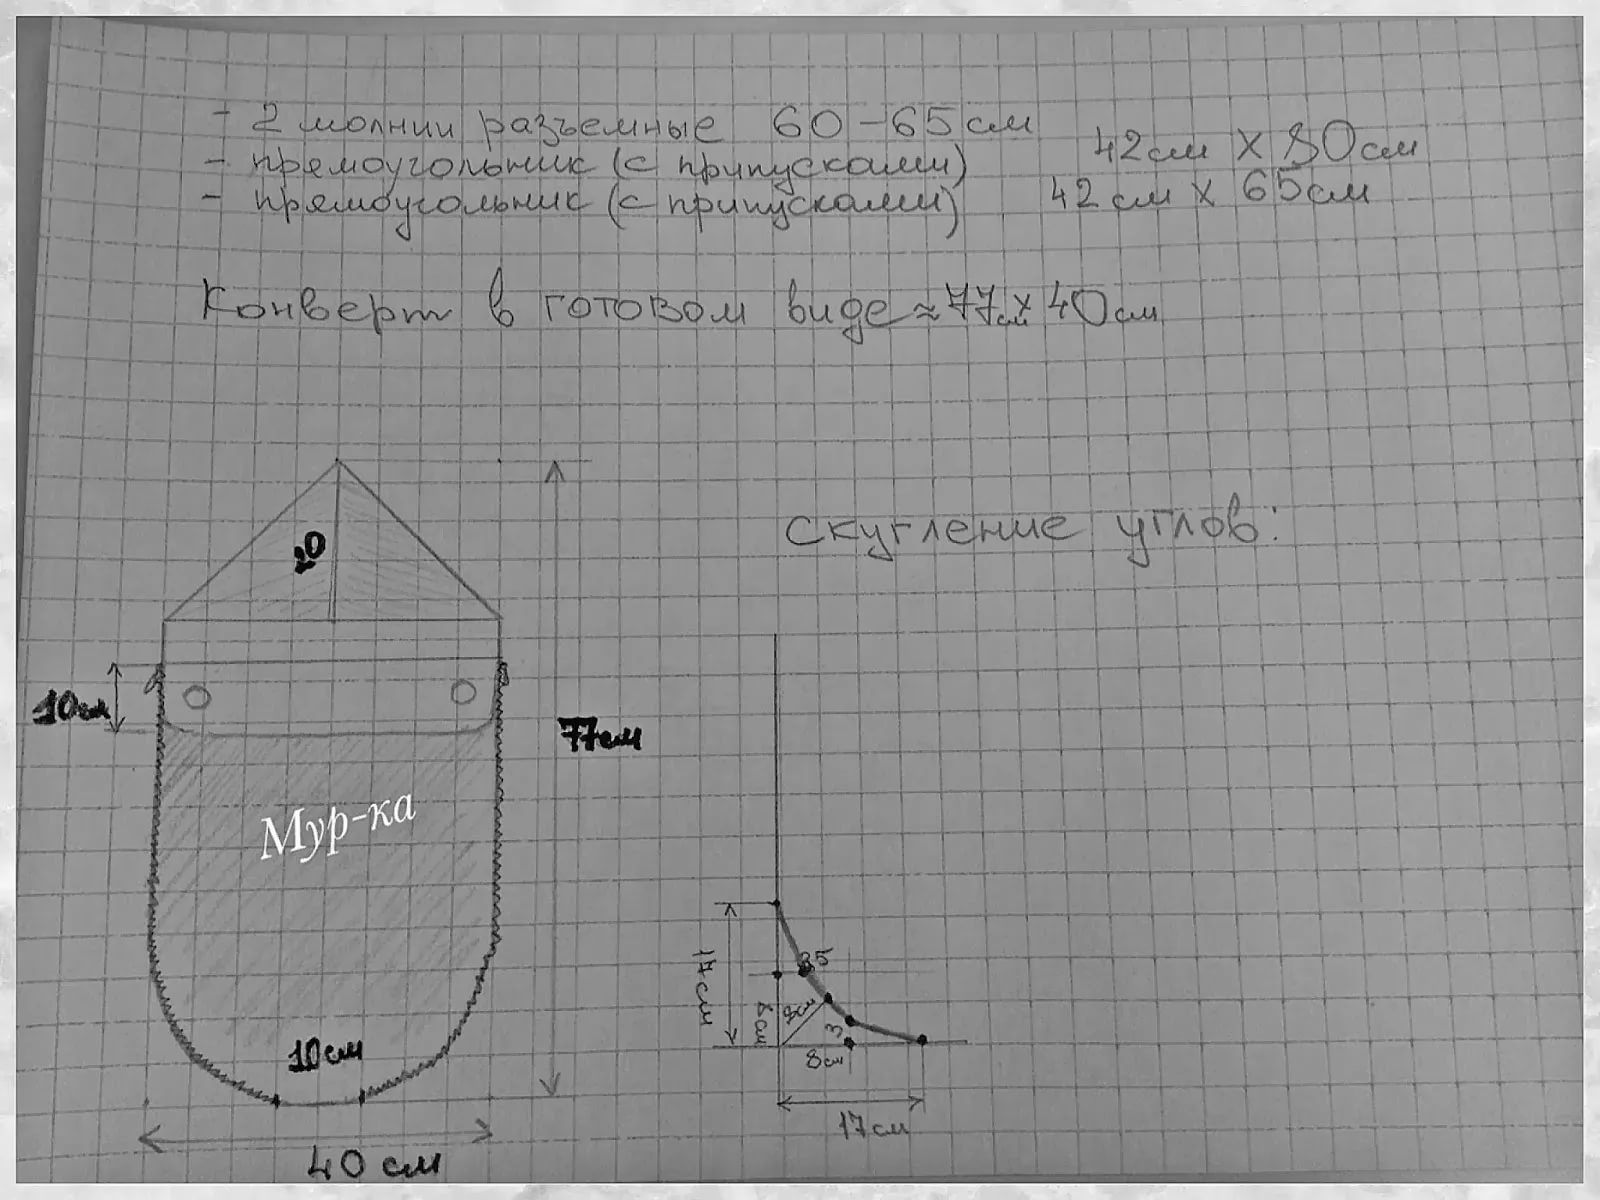 - 2 молнии разъемные 60-65см
- прямоугольник (с припусками) 42см х 80см
- прямоугольник (с припусками) 42см х 65см
Конверт в готовом виде ≈ 77см х 40см
Скугление углов:
20
10см
77см
Мур-ка
10см
40 см
17см
8см
8см
3,5
3
8см
17см